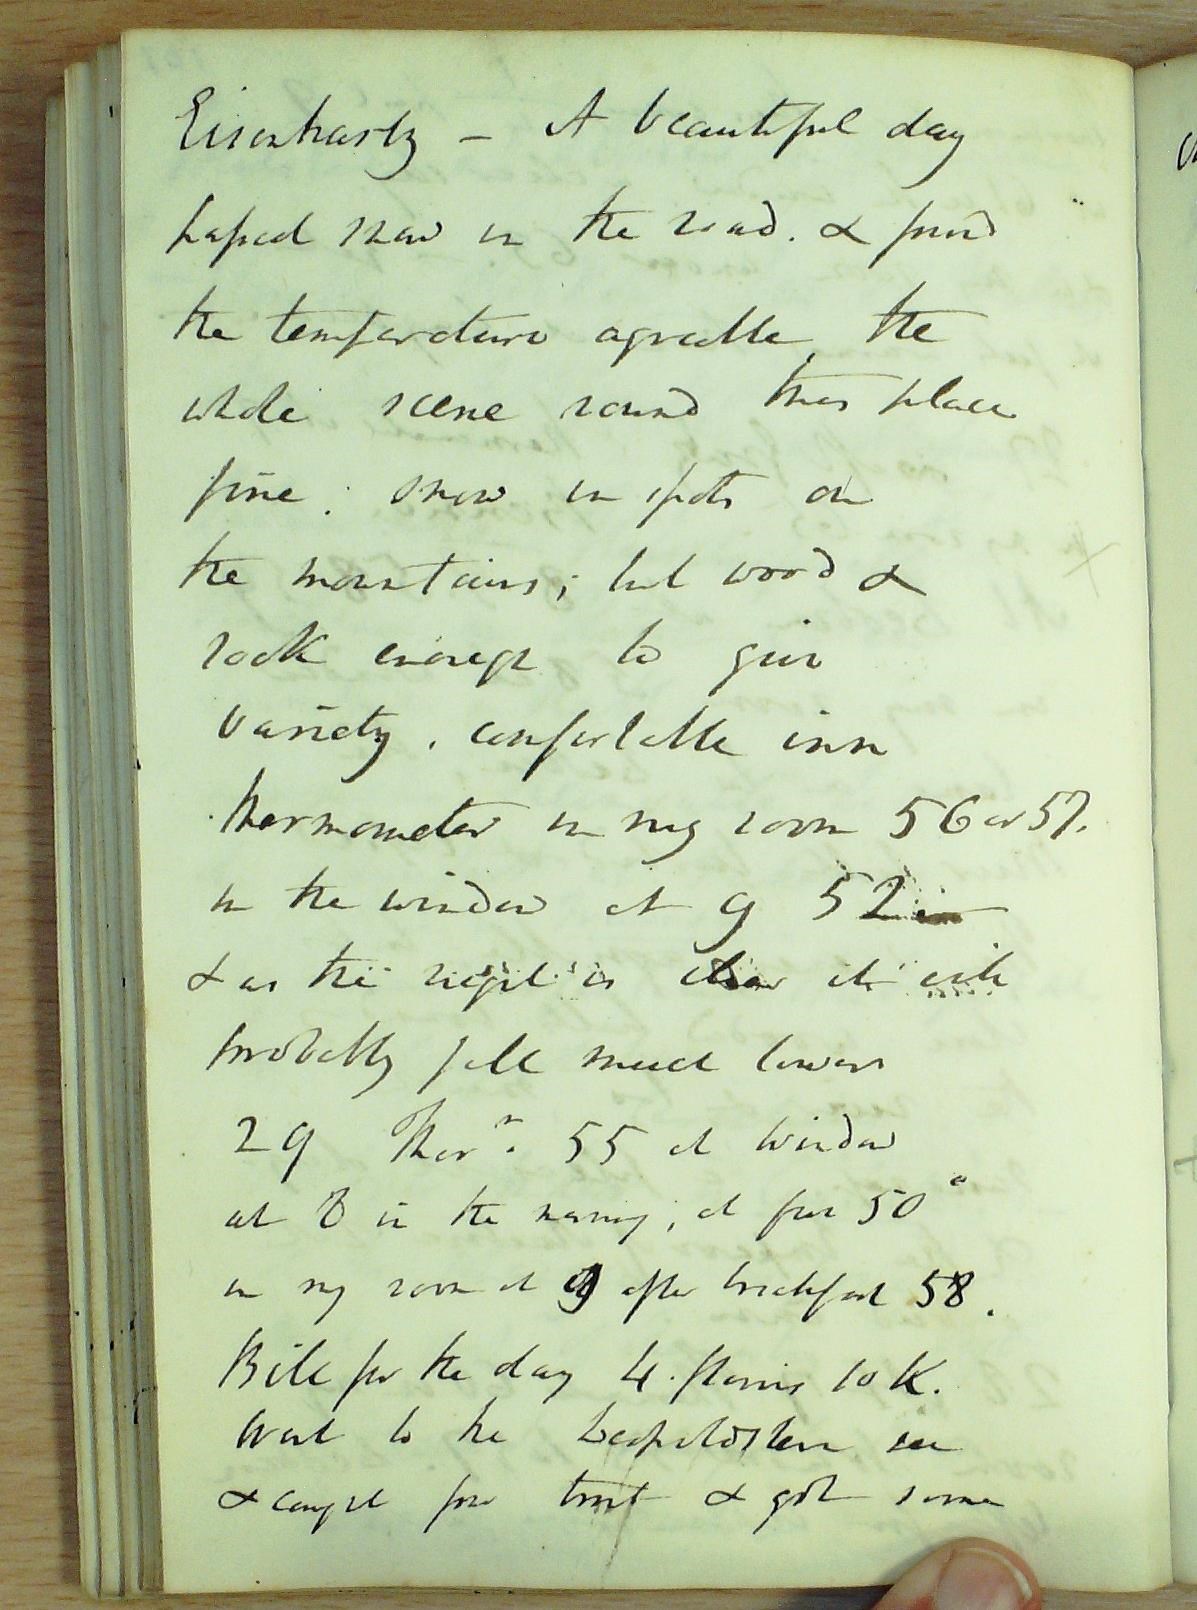 Eisenhartz – A beautiful day
passed snow in the road. & found
the temperature agreeable, the
whole scene round this place
fine: snow in spots on
the mountains; but wood &
rock enough to give
variety. comfortable inn
thermometer in my room 56 or 57.
in the window at 9 52
& as the night is clear it will
probably fall much lower
29 Therr. 55 at window
at 8 in the morng; at five 50°
in my room at 9 after breakfast 58.
Bill for the day 4. florins 10 K.
Went to the Leopoldsten see
& caught few trout & got some